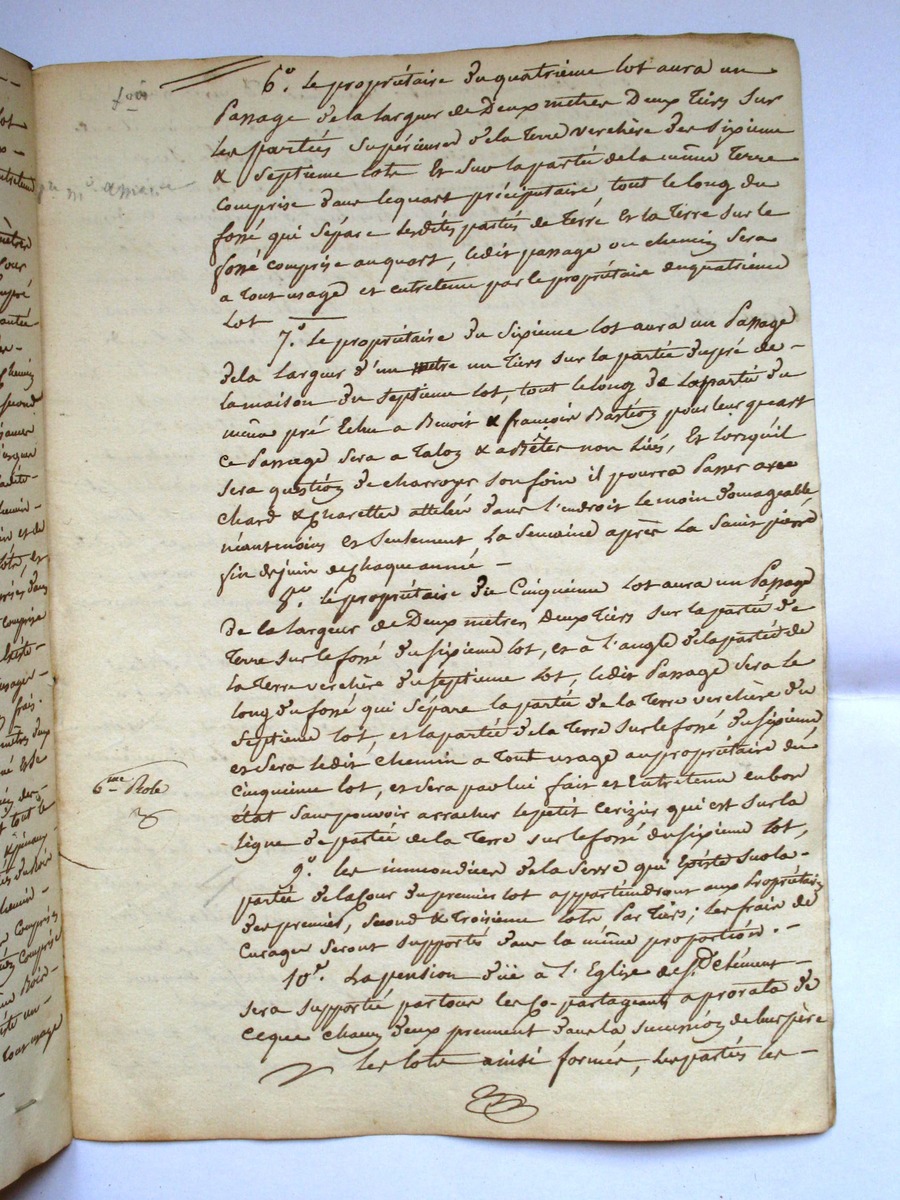 6° Le propriétaire du quatrieme lot aura un
Passage de la largeur de Deux metres Deux tiers sur
les partiés supérieures de la terre verchère des sixieme
& septieme lots et sur la partié de la même terre
comprise dans le quart préciputaire tout le long du
fossé qui sépare lesdites partiés de terre et la terre sur le
fossé comprise au quart, ledit passage ou chemin sera
a tout usage et entretenu par le propriétaire du quatriéme
Lot
7° Le propriétaire du sixieme lot aura un Passage
de la largeur d'un metre un tiers sur la partie du pré de-
la maison du septieme lot, tout le long de la partié du
même pré Echu a Benoit & françois Bastion pour leur quart
ce Passage sera a taloy & a Bêtes non liés, Et lorsqu'il
sera question de charroyer son foin il pourra Passer avec
chard & charettes attelés dans l'endroit le moin Domageable
néantmoins et seulement la semaine après la saint pierre
fin de juin de chaque année -
8° Le propriétaire de Cinquieme lot aura un Passage
De la largeur de Deux metres deux tiers sur la partié de
Terre sur le fossé du sixieme lot, et à l'angle de la partié de
la terre verchère du septieme lot, ledit Passage sera le
long du fossé qui sépare la partié de la terre verchère du
septieme lot et la partié de la terre sur le fossé du sixieme
et sera ledit chemin a tout usage au propriétaire du
6me Role
cinquieme lot, et sera par lui fait et Entretenu en bon
état sans pouvoir arracher le petit cerizier qui est sur la
ligne de partié de la terre sur le fossé du sixieme lot,
9° les immondices de la serre qui Existe sur la-
partié de la Cour du premier lot appartiendront aux Propriétaires
des premier, second & troisieme lots par tiers; les frais de
Curage seront supportés dans la même proportion. -
10° La pension düe à l'Eglise de St. Clément -
sera supportié par tous les Co-partageants a prorata de
ce que chacun d'eux prennent dans la succession de leur père
les lots ainsi formés, les partiés les -